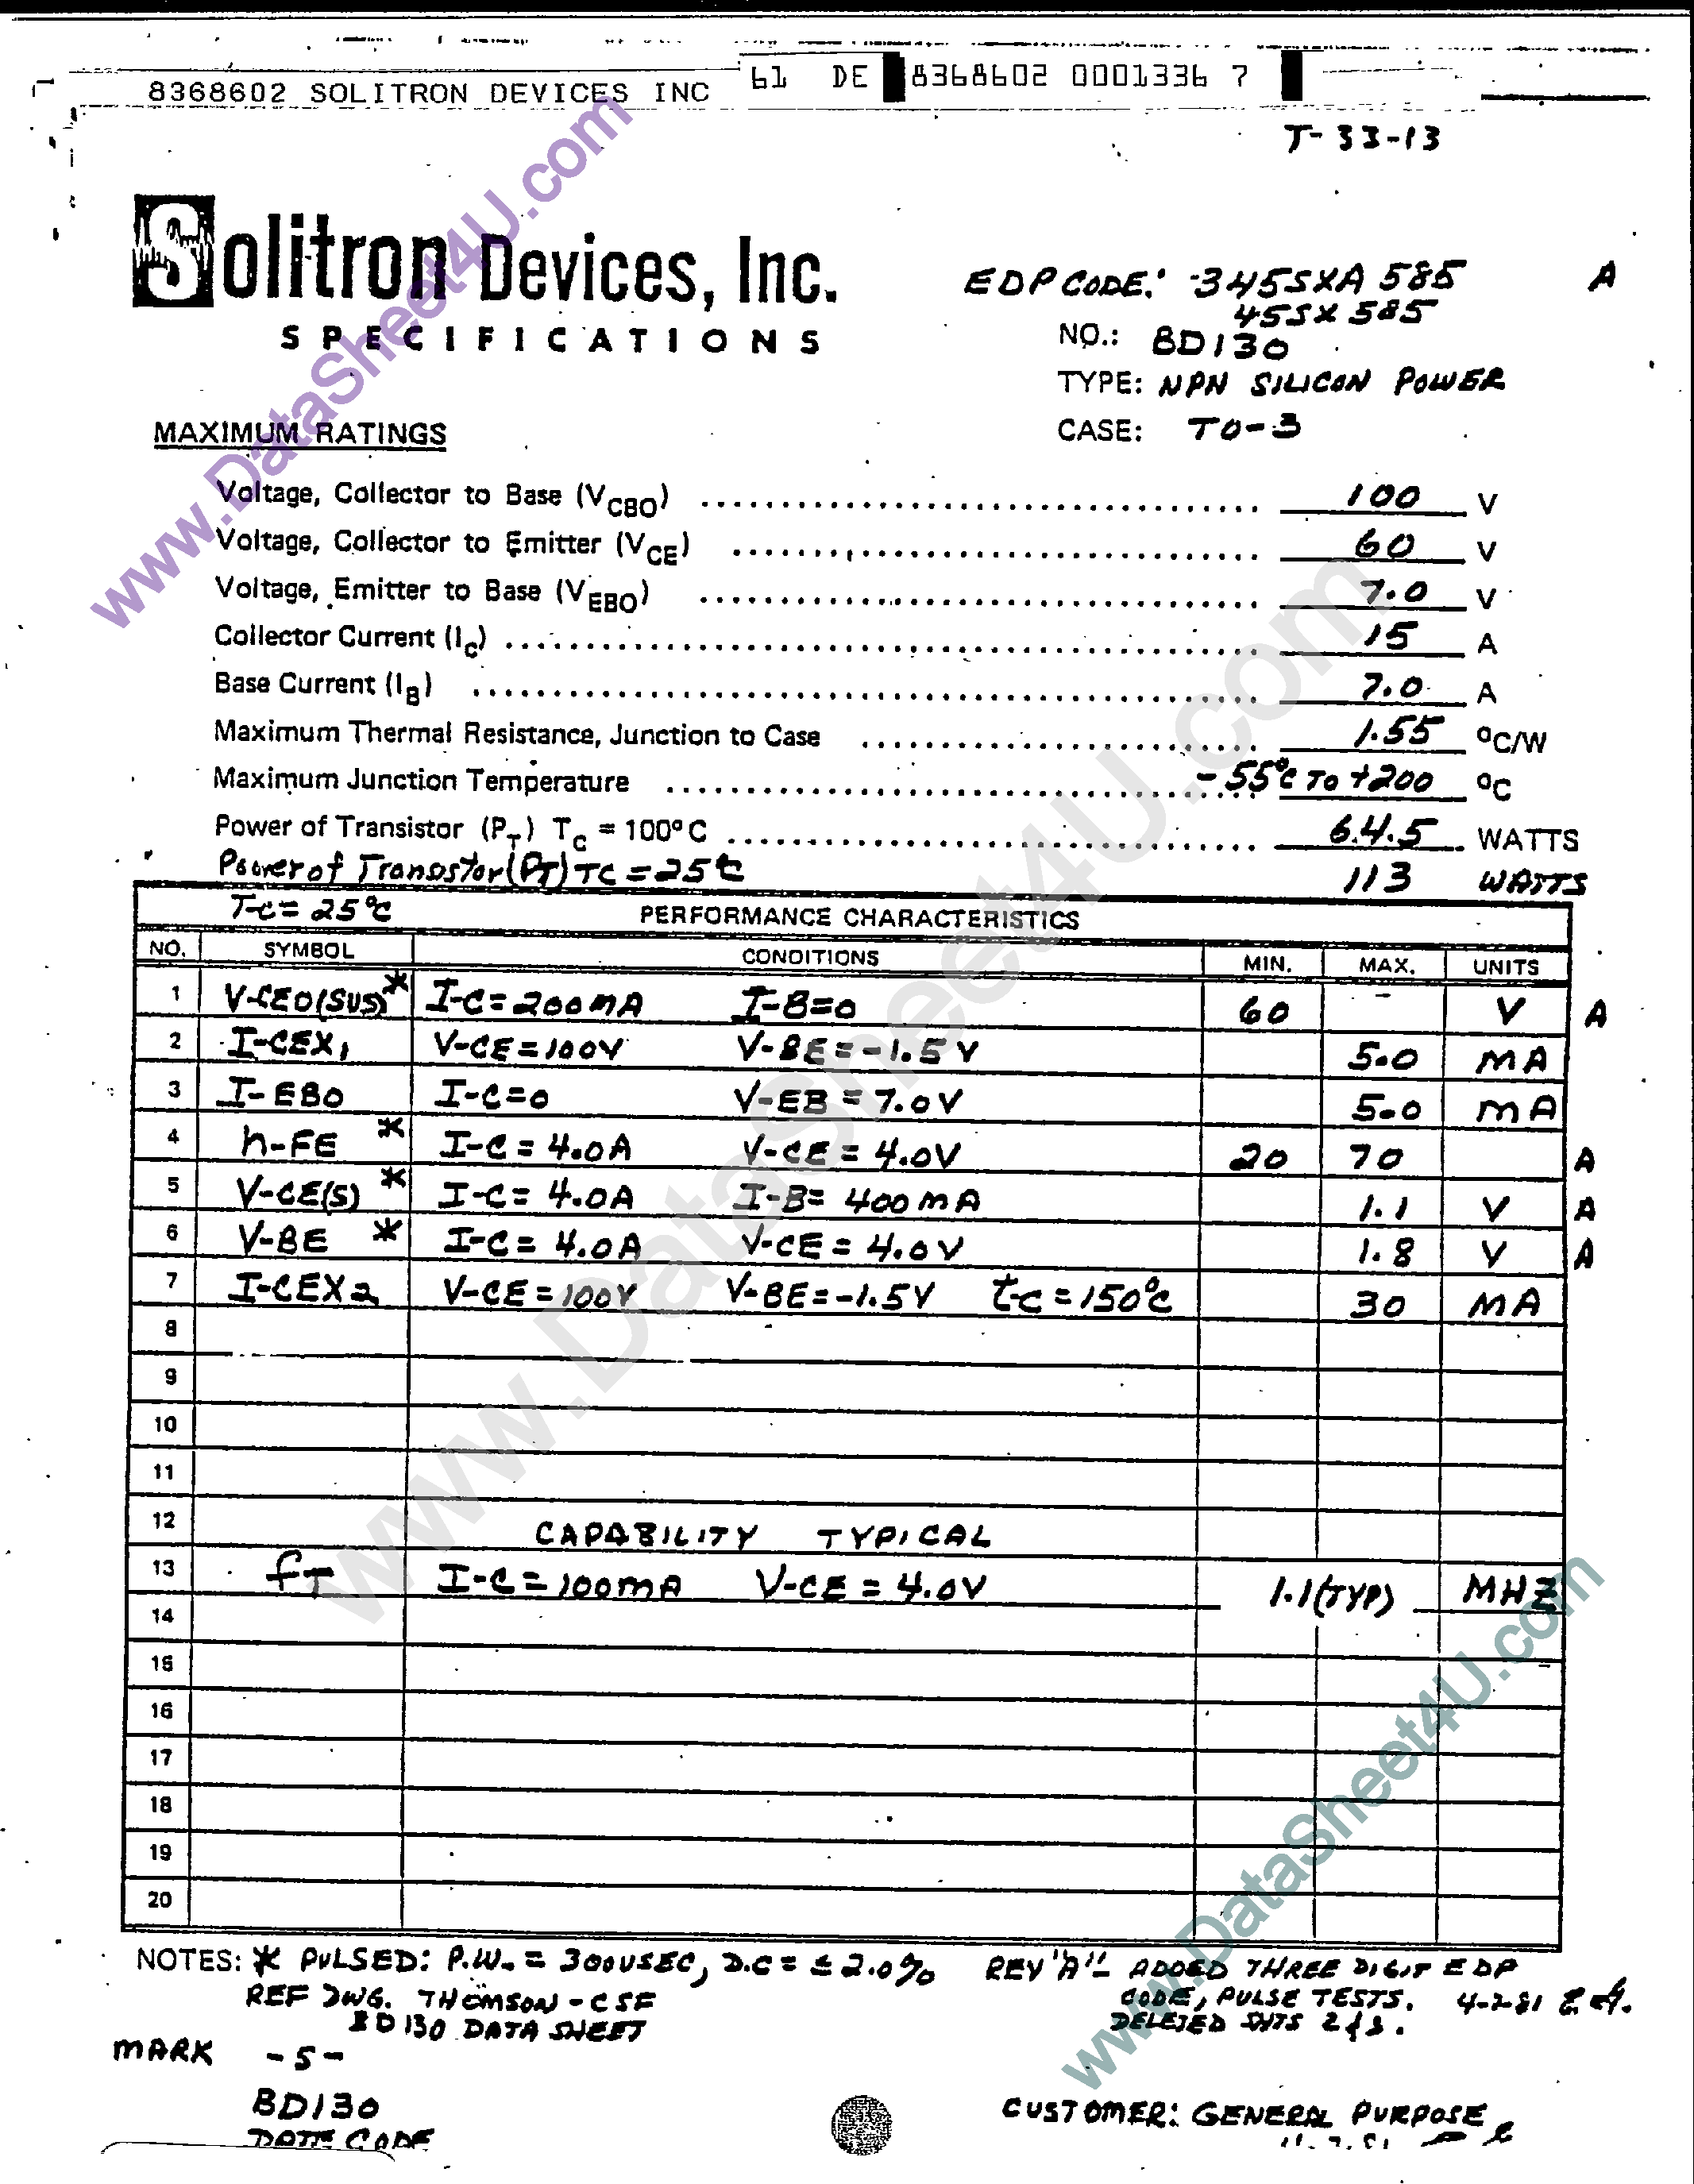 8368602 SOLITRON DEVICES INC 61 DE 8368602 0001336 7
T-33-13
Solitron Devices, Inc.
SPECIFICATIONS
EDP CODE: 345SXA 585 A
45SX 585
NO.: BD130
TYPE: NPN SILICON POWER
CASE: TO-3
MAXIMUM RATINGS
Voltage, Collector to Base (VCBO) 100 V
Voltage, Collector to Emitter (VCE) 60 V
Voltage, Emitter to Base (VEBO) 7.0 V
Collector Current (IC) 15 A
Base Current (IB) 7.0 A
Maximum Thermal Resistance, Junction to Case 1.55 °C/W
Maximum Junction Temperature -55°C TO +200 °C
Power of Transistor (PT) TC = 100°C 64.5 WATTS
Power of Transistor (PT) TC = 25°C 113 WATTS
T-C = 25°C PERFORMANCE CHARACTERISTICS
NO. SYMBOL CONDITIONS MIN. MAX. UNITS
1 V-CEO(SUS)* I-C = 200MA I-B=0 60 - V A
2 I-CEX1 V-CE=100V V-BE=-1.5V 5.0 MA
3 I-EBO I-C=0 V-EB = 7.0V 5.0 mA
4 h-FE * I-C = 4.0A V-CE = 4.0V 20 70 A
5 V-CE(S) * I-C = 4.0A I-B = 400mA 1.1 V A
6 V-BE * I-C = 4.0A V-CE = 4.0V 1.8 V A
7 I-CEX2 V-CE=100V V-BE=-1.5V t-C=150°C 30 MA
8
9
10
11
12 CAPABILITY TYPICAL
13 fT I-C = 100mA V-CE = 4.0V 1.1(TYP) MHZ
14
15
16
17
18
19
20
NOTES: * PULSED: P.W. = 300USEC, D.C = ≤ 2.0% REV "A" - ADDED THREE DIGIT EDP
REF DWG. THOMSON-CSF CODE, PULSE TESTS. 4-2-81
BD130 DATA SHEET DELETED SHTS 2 & 3.
MARK -S-
BD130
DATE CODE
CUSTOMER: GENERAL PURPOSE
www.DataSheet4U.com
www.DataSheet4U.com
www.DataSheet4U.com